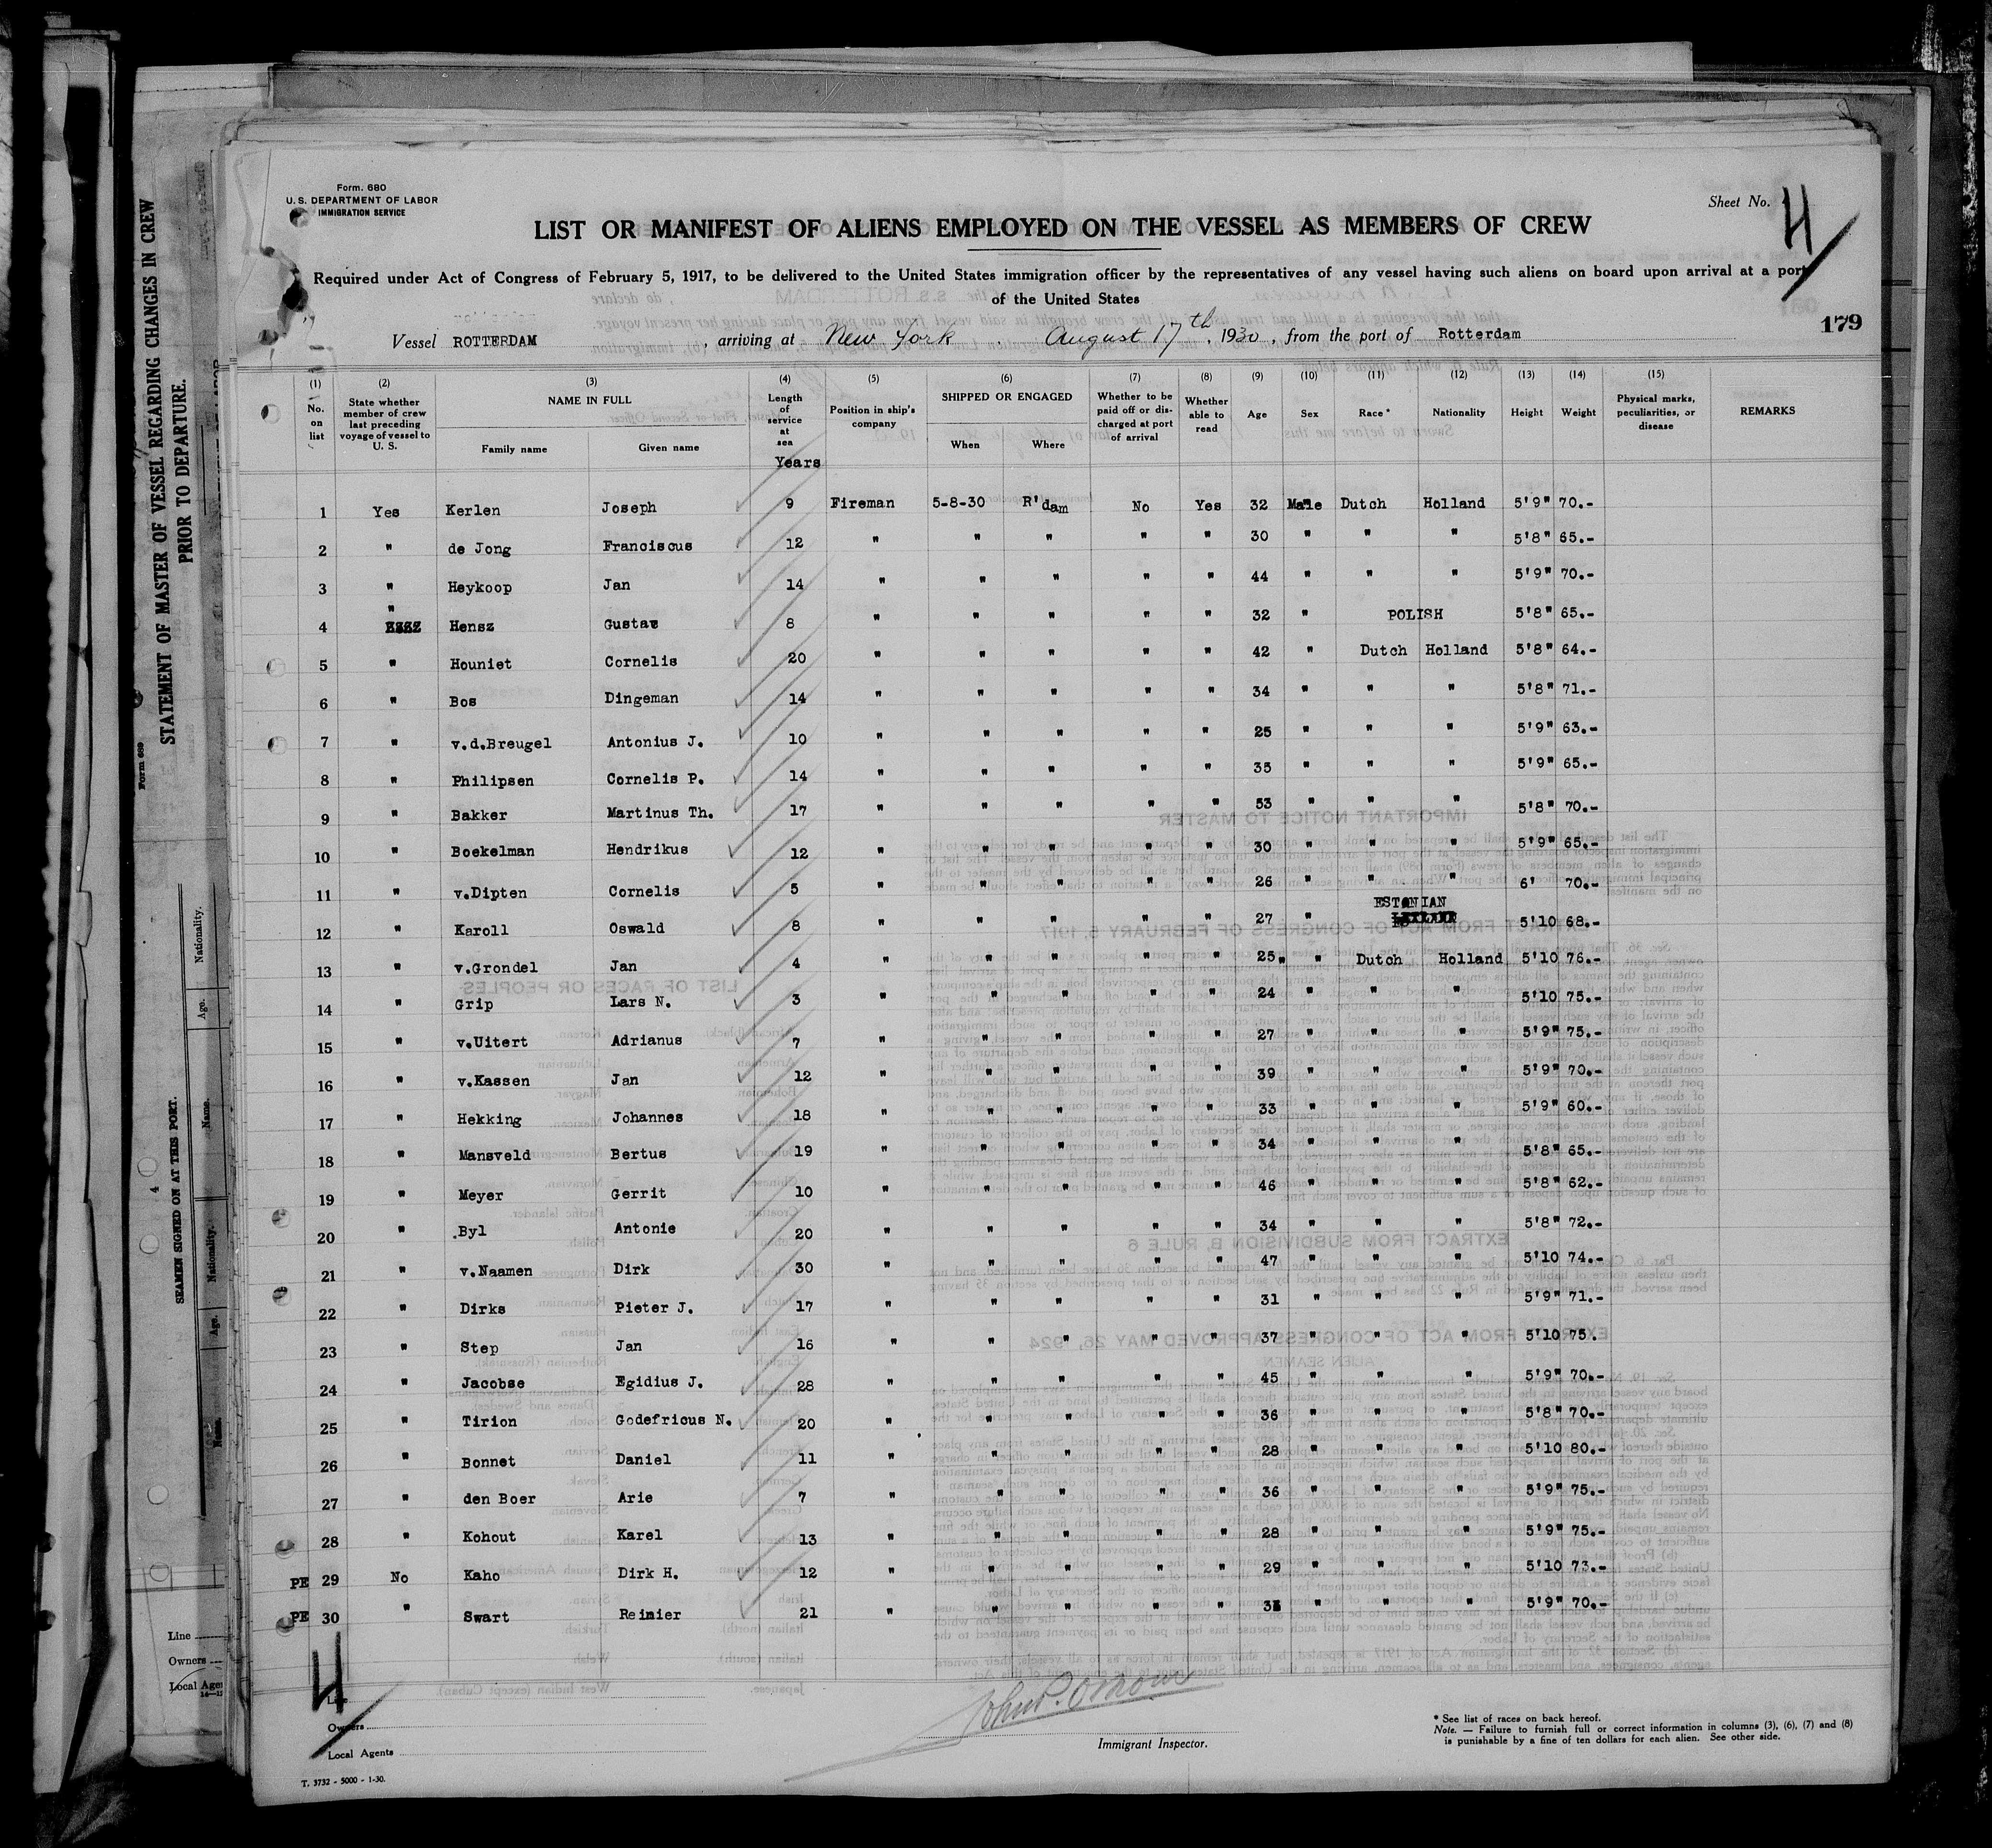 Form. 680
U. S. DEPARTMENT OF LABOR
IMMIGRATION SERVICE
Sheet No. 4
LIST OR MANIFEST OF ALIENS EMPLOYED ON THE VESSEL AS MEMBERS OF CREW
Required under Act of Congress of February 5, 1917, to be delivered to the United States immigration officer by the representatives of any vessel having such aliens on board upon arrival at a port
of the United States
179
Vessel ROTTERDAM , arriving at New York . August 17th , 1930 , from the port of Rotterdam
(1) (2) (3) (4) (5) (6) (7) (8) (9) (10) (11) (12) (13) (14) (15)
No. on list State whether member of crew last preceding voyage of vessel to U. S. NAME IN FULL Family name Given name Length of service at sea Years Position in ship's company SHIPPED OR ENGAGED When Where Whether to be paid off or discharged at port of arrival Whether able to read Age Sex Race* Nationality Height Weight Physical marks, peculiarities, or disease REMARKS
1 Yes Kerlen Joseph 9 Fireman 5-8-30 R'dam No Yes 32 Male Dutch Holland 5'9" 70.-
2 " de Jong Franciscus 12 " " " " " 30 " " " 5'8" 65.-
3 " Heykoop Jan 14 " " " " " 44 " " " 5'9" 70.-
4 " Hensz Gustav 8 " " " " " 32 " POLISH 5'8" 65.-
5 " Houniet Cornelis 20 " " " " " 42 " Dutch Holland 5'8" 64.-
6 " Bos Dingeman 14 " " " " " 34 " " " 5'8" 71.-
7 " v.d.Breugel Antonius J. 10 " " " " " 25 " " " 5'9" 63.-
8 " Philipsen Cornelis P. 14 " " " " " 35 " " " 5'9" 65.-
9 " Bakker Martinus Th. 17 " " " " " 53 " " " 5'8" 70.-
10 " Boekelman Hendrikus 12 " " " " " 30 " " " 5'9" 65.-
11 " v.Dipten Cornelis 5 " " " " " 26 " " " 6' 70.-
12 " Karoll Oswald 8 " " " " " 27 " ESTONIAN 5'10 68.-
13 " v.Grondel Jan 4 " " " " " 25 " Dutch Holland 5'10 76.-
14 " Grip Lars N. 3 " " " " " 24 " " " 5'10 75.-
15 " v.Uitert Adrianus 7 " " " " " 27 " " " 5'9" 75.-
16 " v.Kassen Jan 12 " " " " " 39 " " " 5'9" 70.-
17 " Hekking Johannes 18 " " " " " 33 " " " 5'9" 60.-
18 " Mansveld Bertus 19 " " " " " 34 " " " 5'8" 65.-
19 " Meyer Gerrit 10 " " " " " 46 " " " 5'8" 62.-
20 " Byl Antonie 20 " " " " " 34 " " " 5'8" 72.-
21 " v.Naamen Dirk 30 " " " " " 47 " " " 5'10 74.-
22 " Dirks Pieter J. 17 " " " " " 31 " " " 5'9" 71.-
23 " Step Jan 16 " " " " " 37 " " " 5'10 75.
24 " Jacobse Egidius J. 28 " " " " " 45 " " " 5'9" 70.-
25 " Tirion Godefricus N. 20 " " " " " 36 " " " 5'8" 70.-
26 " Bonnet Daniel 11 " " " " " 28 " " " 5'10 80.-
27 " den Boer Arie 7 " " " " " 36 " " " 5'9" 75.-
28 " Kohout Karel 13 " " " " " 28 " " " 5'9" 75.-
PE 29 No Kaho Dirk H. 12 " " " " " 29 " " " 5'10 73.-
PE 30 " Swart Reinier 21 " " " " " " " " 5'9" 70.-
4
Line
Owners
Local Agents
Immigrant Inspector.
* See list of races on back hereof.
Note. — Failure to furnish full or correct information in columns (3), (6), (7) and (8)
is punishable by a fine of ten dollars for each alien. See other side.
T. 3732 - 5000 - 1-30.
STATEMENT OF MASTER OF VESSEL REGARDING CHANGES IN CREW
PRIOR TO DEPARTURE.
Form 689
SEAMEN SIGNED ON AT THIS PORT.
Nationality.
Age.
Name.
Nationality.
Age.
Name.
4
Line
Owners
Local Agen